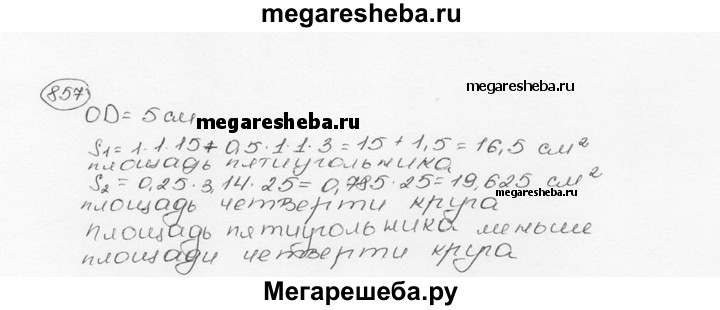 megaresheba.ru
857
megaresheba.ru
OD = 5 см
megaresheba.ru
S1 = 1·1·15 + 0,5·1·1·3 = 15 + 1,5 = 16,5 см²
площадь пятиугольника
S2 = 0,25·3,14·25 = 0,785·25 = 19,625 см²
megaresheba.ru
площадь четверти круга
площадь пятиугольника меньше
площади четверти круга
Мегарешеба.ру